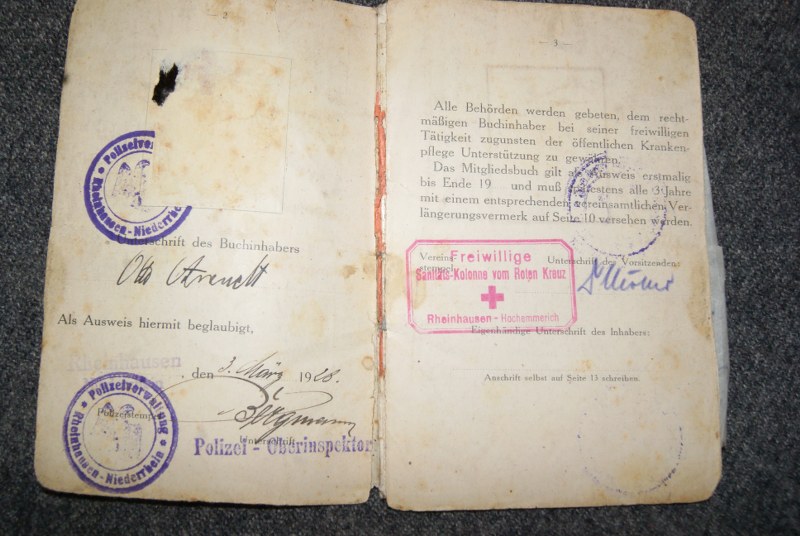 Polizeiverw
Rheinhausen-Niederrhein
Unterschrift des Buchinhabers
Otto Arendt
Als Ausweis hiermit beglaubigt,
Rheinhausen
den 3. März 1928.
Polizeistempel
Polizeiverwaltung
Rheinhausen-Niederrhein
Unterschrift
Polizei - Oberinspektor
3
Alle Behörden werden gebeten, dem recht-
mäßigen Buchinhaber bei seiner freiwilligen
Tätigkeit zugunsten der öffentlichen Kranken-
pflege Unterstützung zu gewähren.
Das Mitgliedsbuch gilt als Ausweis erstmalig
bis Ende 19 und muß spätestens alle 3 Jahre
mit einem entsprechenden vereinsamtlichen Ver-
längerungsvermerk auf Seite 10 versehen werden.
Vereins-
stempel
Unterschrift des Vorsitzenden:
Freiwillige
Sanitäts-Kolonne vom Roten Kreuz
Rheinhausen - Hochemmerich
Eigenhändige Unterschrift des Inhabers:
Anschrift selbst auf Seite 13 schreiben.